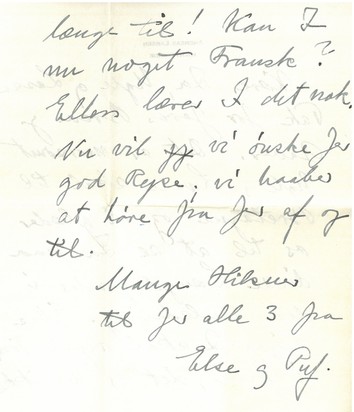 længe til! Kan I
nu noget Fransk?
Ellers lærer I det nok.
Nu vil jeg vi ønske Jer
god Rejse, vi haaber
at høre fra Jer af og
til.
Mange Hilsner
til Jer alle 3 fra
Else og Puf.